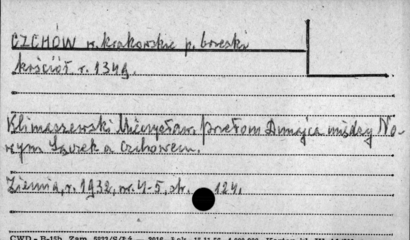 CZCHÓW w. krakowskie p. brzeski
kościół r. 1349.
Klimaszewski Mieczysław. Przełom Dunajca między No-
wym Sączek a Czchowem.
Ziemia, r. 1932, nr. 4-5, str. 124.
CWD - B-15b Zam.